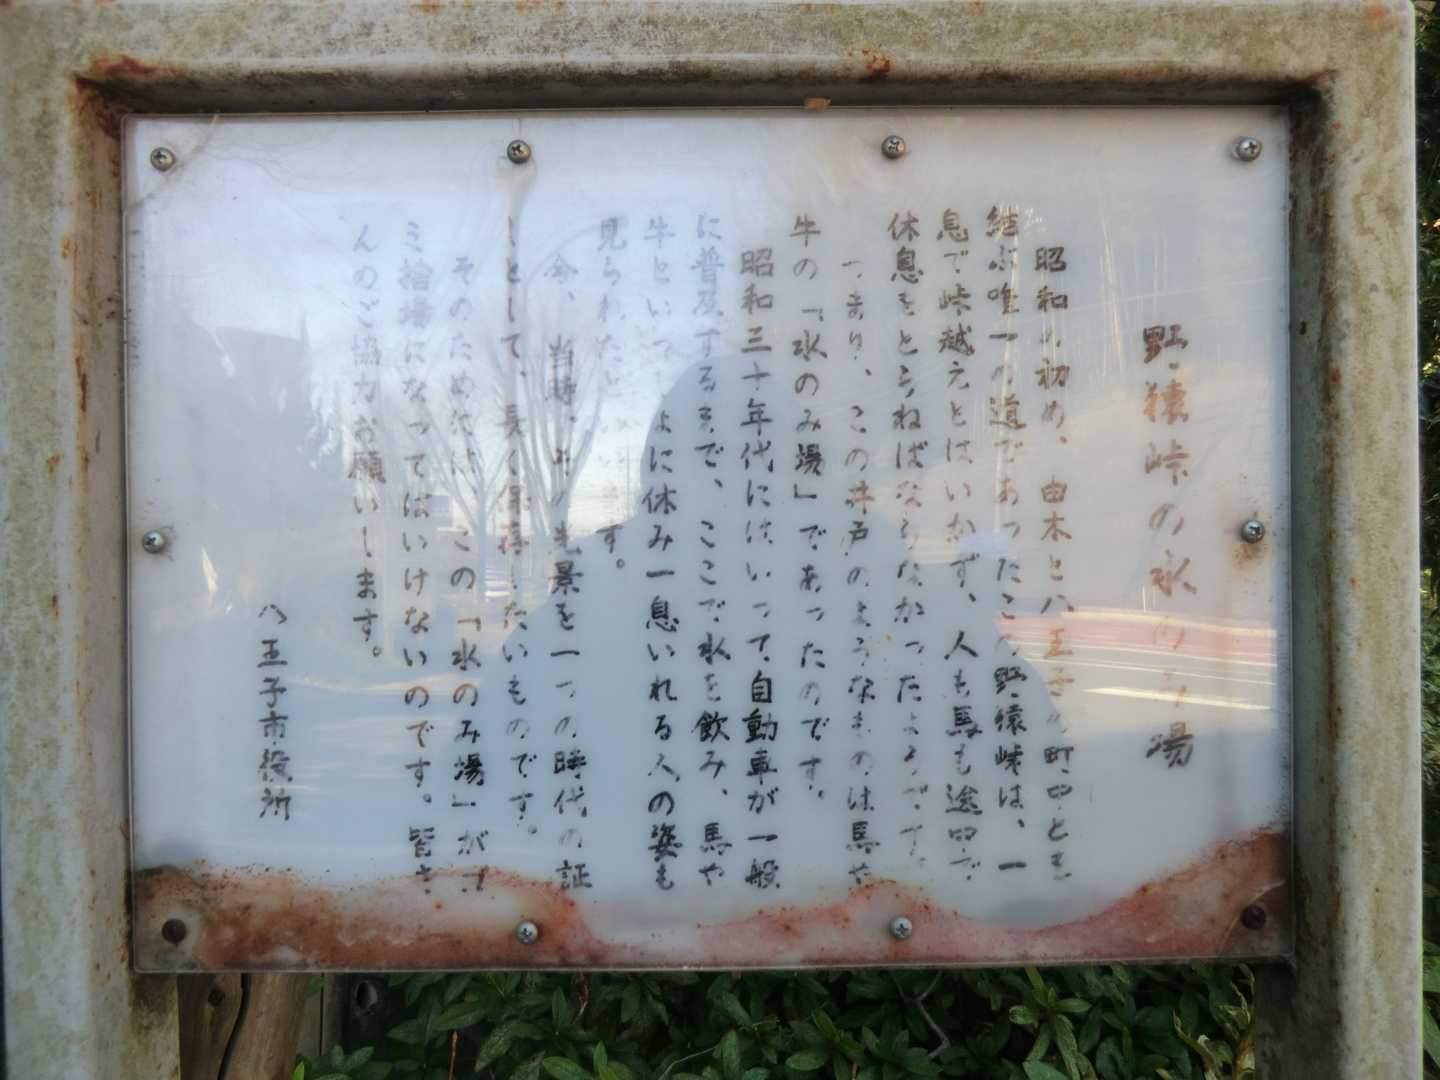 野猿峠の水のみ場
昭和の初め、由木と八王子の町中とを
結ぶ唯一の道であったこの野猿峠は、一
息で峠越えとはいかず、人も馬も途中で
休息をとらねばならなかったようです。
つまり、この井戸のようなものは馬や
牛の「水のみ場」であったのです。
昭和三十年代にはいって自動車が一般
に普及するまで、ここで水を飲み、馬や
牛といっしょに休み一息いれる人の姿も
見られたといいます。
今、当時、その光景を一つの時代の証
しとして、長く保存したいものです。
そのためには、この「水のみ場」がゴ
ミ捨場になってはいけないのです。皆さ
んのご協力お願いします。
八王子市役所